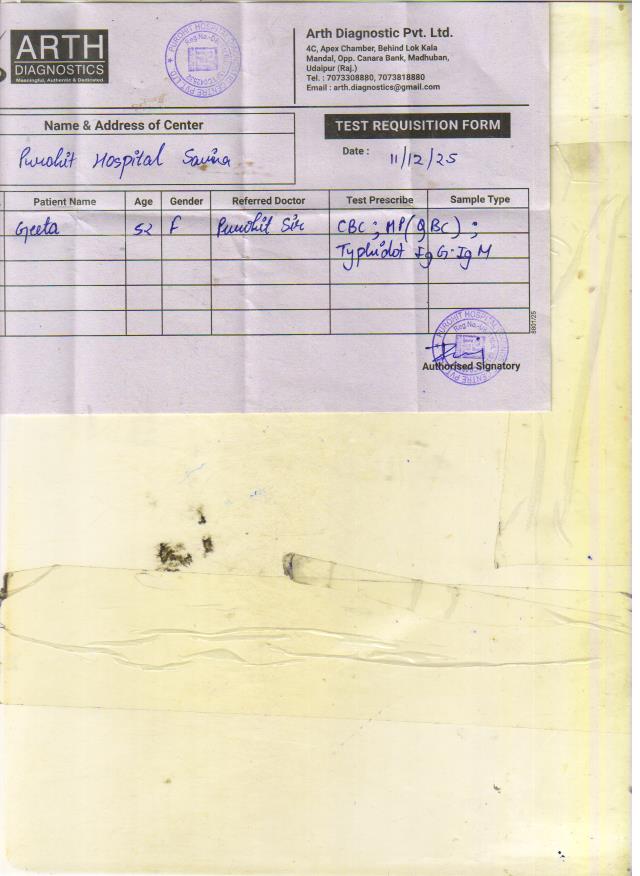 ARTH
DIAGNOSTICS
Meaningful, Authentic & Dedicated
Arth Diagnostic Pvt. Ltd.
4C, Apex Chamber, Behind Lok Kala
Mandal, Opp. Canara Bank, Madhuban,
Udaipur (Raj.)
Tel. : 7073308880, 7073818880
Email : arth.diagnostics@gmail.com
Name & Address of Center
TEST REQUISITION FORM
Purohit Hospital Savina
Date : 11/12/25
Patient Name Age Gender Referred Doctor Test Prescribe Sample Type
Geeta 52 F Purohit Sir CBC ; MP(QBC) ;
Typhidot IgG-IgM
8801/25
PUROHIT HOSPITAL
Authorised Signatory